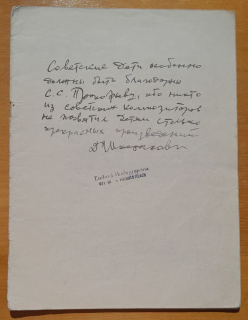 Советские дети особенно
должны быть благодарны
С.С. Прокофьеву, ибо никто
из советских композиторов
не посвятил детям столько
прекрасных произведений
Д Шостакович